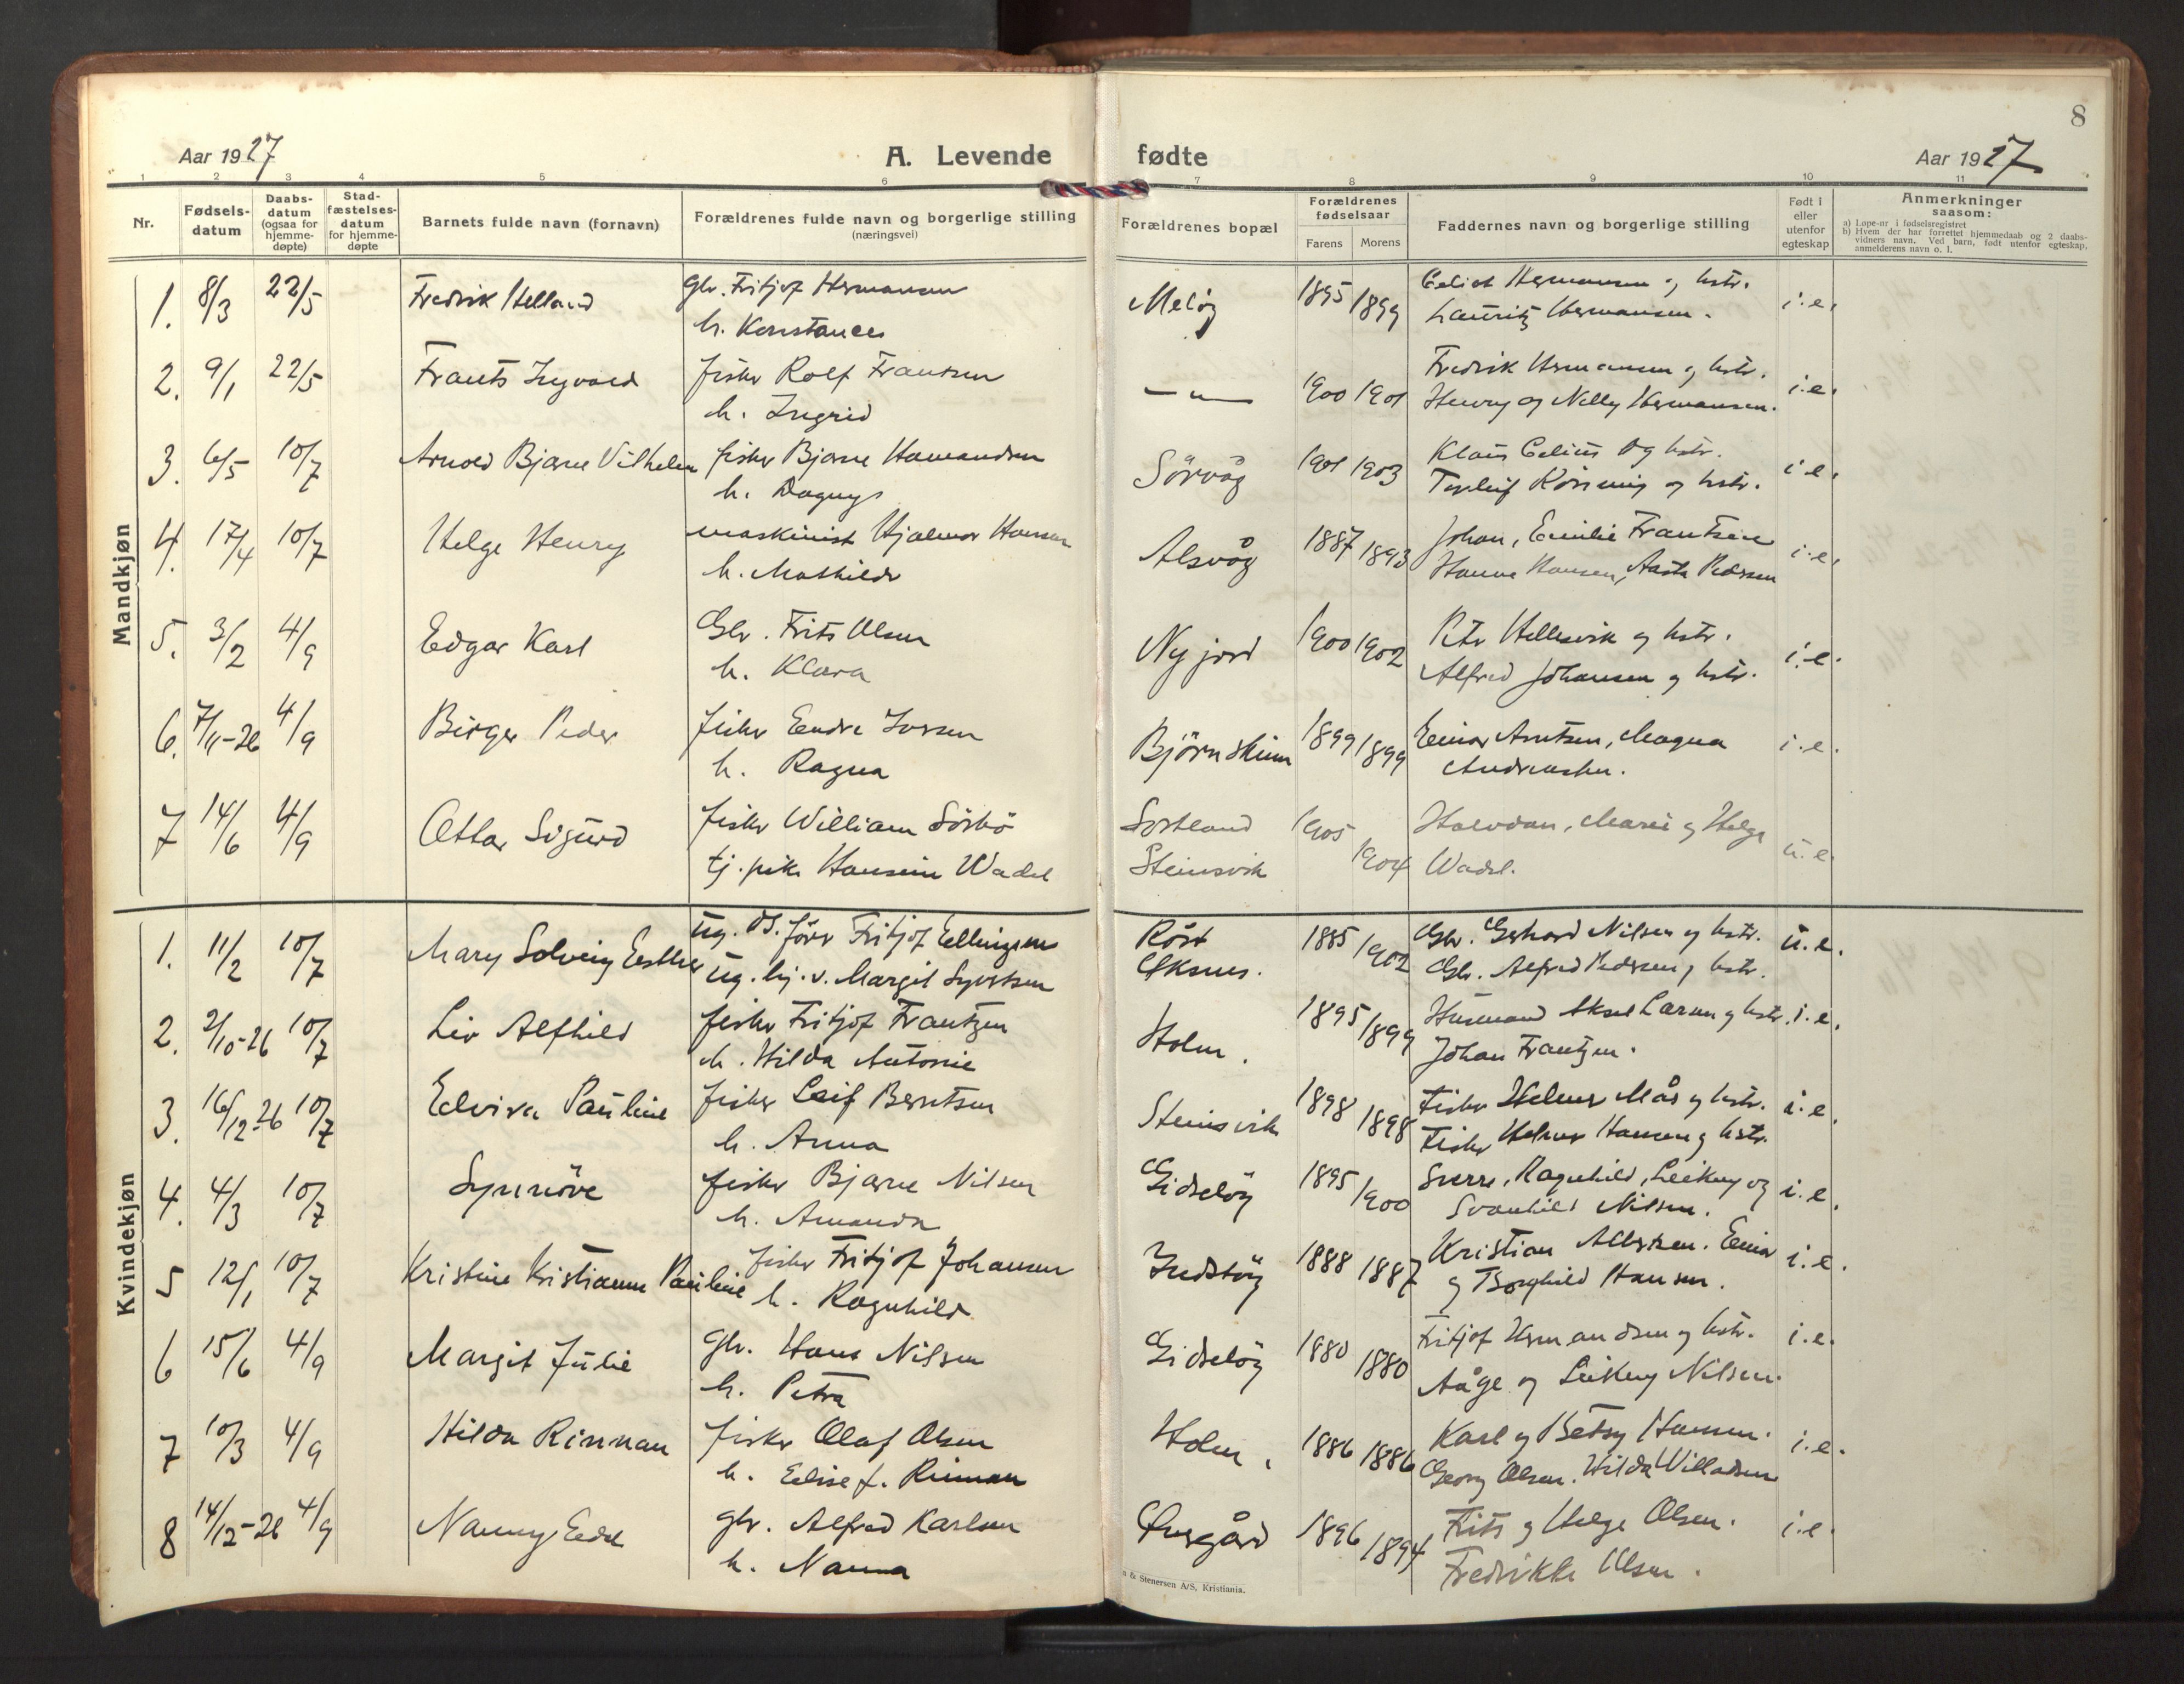 8
Aar 1927
A. Levende fødte
Aar 1927
1 2 3 4 5 6 7 8 9 10 11
Nr.
Fødsels-
datum
Daabs-
datum
(ogsaa for
hjemme-
døpte)
Stad-
fæstelses-
datum
for hjemme-
døpte
Barnets fulde navn (fornavn)
Forældrenes fulde navn og borgerlige stilling
(næringsvei)
Forældrenes bopæl
Forældrenes
fødselsaar
Farens Morens
Faddernes navn og borgerlige stilling
Født i
eller
utenfor
egteskap
Anmerkninger
saasom:
a) Løpe-nr i fødselsregistret
b) Hvem der har forrettet hjemmedaab og 2 daabs-
vidners navn. Ved barn, født utenfor egteskap,
anmelderens navn o. l.
Mandkjøn
1. 8/3 22/5 Fredrik Helland Gbr. Fritjof Hermansen Meløy 1895 1899 Hermansen og hstr. i.e.
h. Konstance Lauritz Hermansen.
2. 9/1 22/5 Frants Ingvald fisker Rolf Frantsen — " — 1900 1901 Fredrik Hermansen og hstr. i.e.
h. Ingrid Henry og Nelly Hermansen.
3. 6/5 10/7 Arnold Bjarne Vilhelm fisker Bjarne Hamandsen Sörvåg 1901 1903 Klaus Celius og hstr. i.e.
h. Dagny og hstr.
4. 17/4 10/7 Helge Henry maskinist Hjalmar Hansen Alsvåg 1887 1893 Johan, Emilie Frantsen i.e.
h. Mathilde Hanna Hansen, Aasta Pedersen
5. 3/2 4/9 Edgar Karl Gbr. Frits Olsen Nyjord 1900 1902 Peter Hellesvik og hstr. i.e.
h. Klara Alfred Johansen og hstr.
6. 7/11-26 4/9 Birger Peder fisker Endre Iversen Björnskinn 1899 1899 Einar Arntsen, Magna i.e.
h. Ragna Andreassen.
7 14/6 4/9 Ottar Sigurd fisker William Sörbö Sortland 1905 Halvdan, Marie og Helga u.e.
tj. pike Hansine Wadel Steinsvik 1904 Wadel.
Kvindekjøn
1. 11/2 10/7 Mary Solveig Esther Ug. Fritjof Ellingsen Röst 1885 1902 Gbr. Gerhard Nilsen og hstr. u.e.
Ug. hj.v. Margit Sivertsen Öksnes. Gbr. Alfred Pedersen og hstr.
2. 2/10-26 10/7 Liv Alfhild fisker Fritjof Frantzen Holm. 1895 1899 Husmand Aksel Larsen og hstr. i.e.
h. Hilda Antonie Johan Frantzen.
3. 16/12-26 10/7 Elvira Pauline fisker Leif Berntsen Steinsvik 1898 1898 Fisker Helmer Mås og hstr. i.e.
h. Anna Fisker Helmer Hansen og hstr.
4. 4/3 10/7 Synnöve fisker Bjarne Nilsen Gidslöy 1895 1900 Sverre, Ragnhild, Leikny og i.e.
h. Amanda Svanhild Nilsen.
5 12/1 10/7 Kristine Kristianne Pauline fisker Fritjof Johansen 1888 1887 Kristian Albertsen. Einar i.e.
h. Ragnhild og Borghild Hansen.
6 15/6 4/9 Margit Julie Gbr. Hans Nilsen Gidslöy 1880 1880 Fritjof Hermandsen og hstr. i.e.
h. Petra Aåge og Leikny Nilsen.
7 10/3 4/9 Hilda Rinnan fisker Olaf Olsen Holm. 1886 1886 Karl og Betsy Hansen. i.e.
h. Elise f. Rinnan Georg Olsen. Hilda Willadsen
8 14/12-26 4/9 Nanny Edel gbr. Alfred Karlsen 1896 1894 Frits og Helga Olsen. i.e.
h. Nanna Fredrikke Olsen.
& Stenersen A/S, Kristiania.